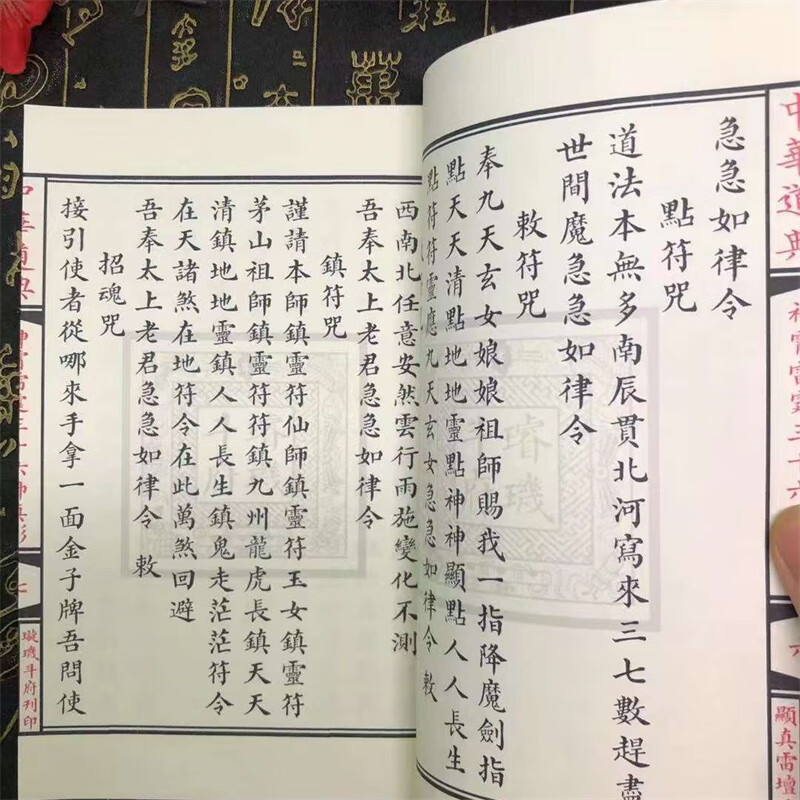 急急如律令
點符咒
道法本無多南辰貫北河寫來三七數趕盡
世間魔急急如律令
敕符咒
奉九天玄女娘娘祖師賜我一指降魔劍指
點天天清點地地靈點神神顯點人人長生
點符符靈應九天玄女急急如律令敕
西南北任意安然雲行雨施變化不測
吾奉太上老君急急如律令
鎮符咒
謹請本師鎮靈符仙師鎮靈符玉女鎮靈符
茅山祖師鎮靈符符鎮九州龍虎長鎮天天
清鎮地地靈鎮人人長生鎮鬼走茫茫符令
在天諸煞在地符令在此萬煞回避
吾奉太上老君急急如律令 敕
招魂咒
接引使者從哪來手拿一面金子牌吾問使
中華道典
顯真雷壇
中華道典
七
璇璣斗府刊印